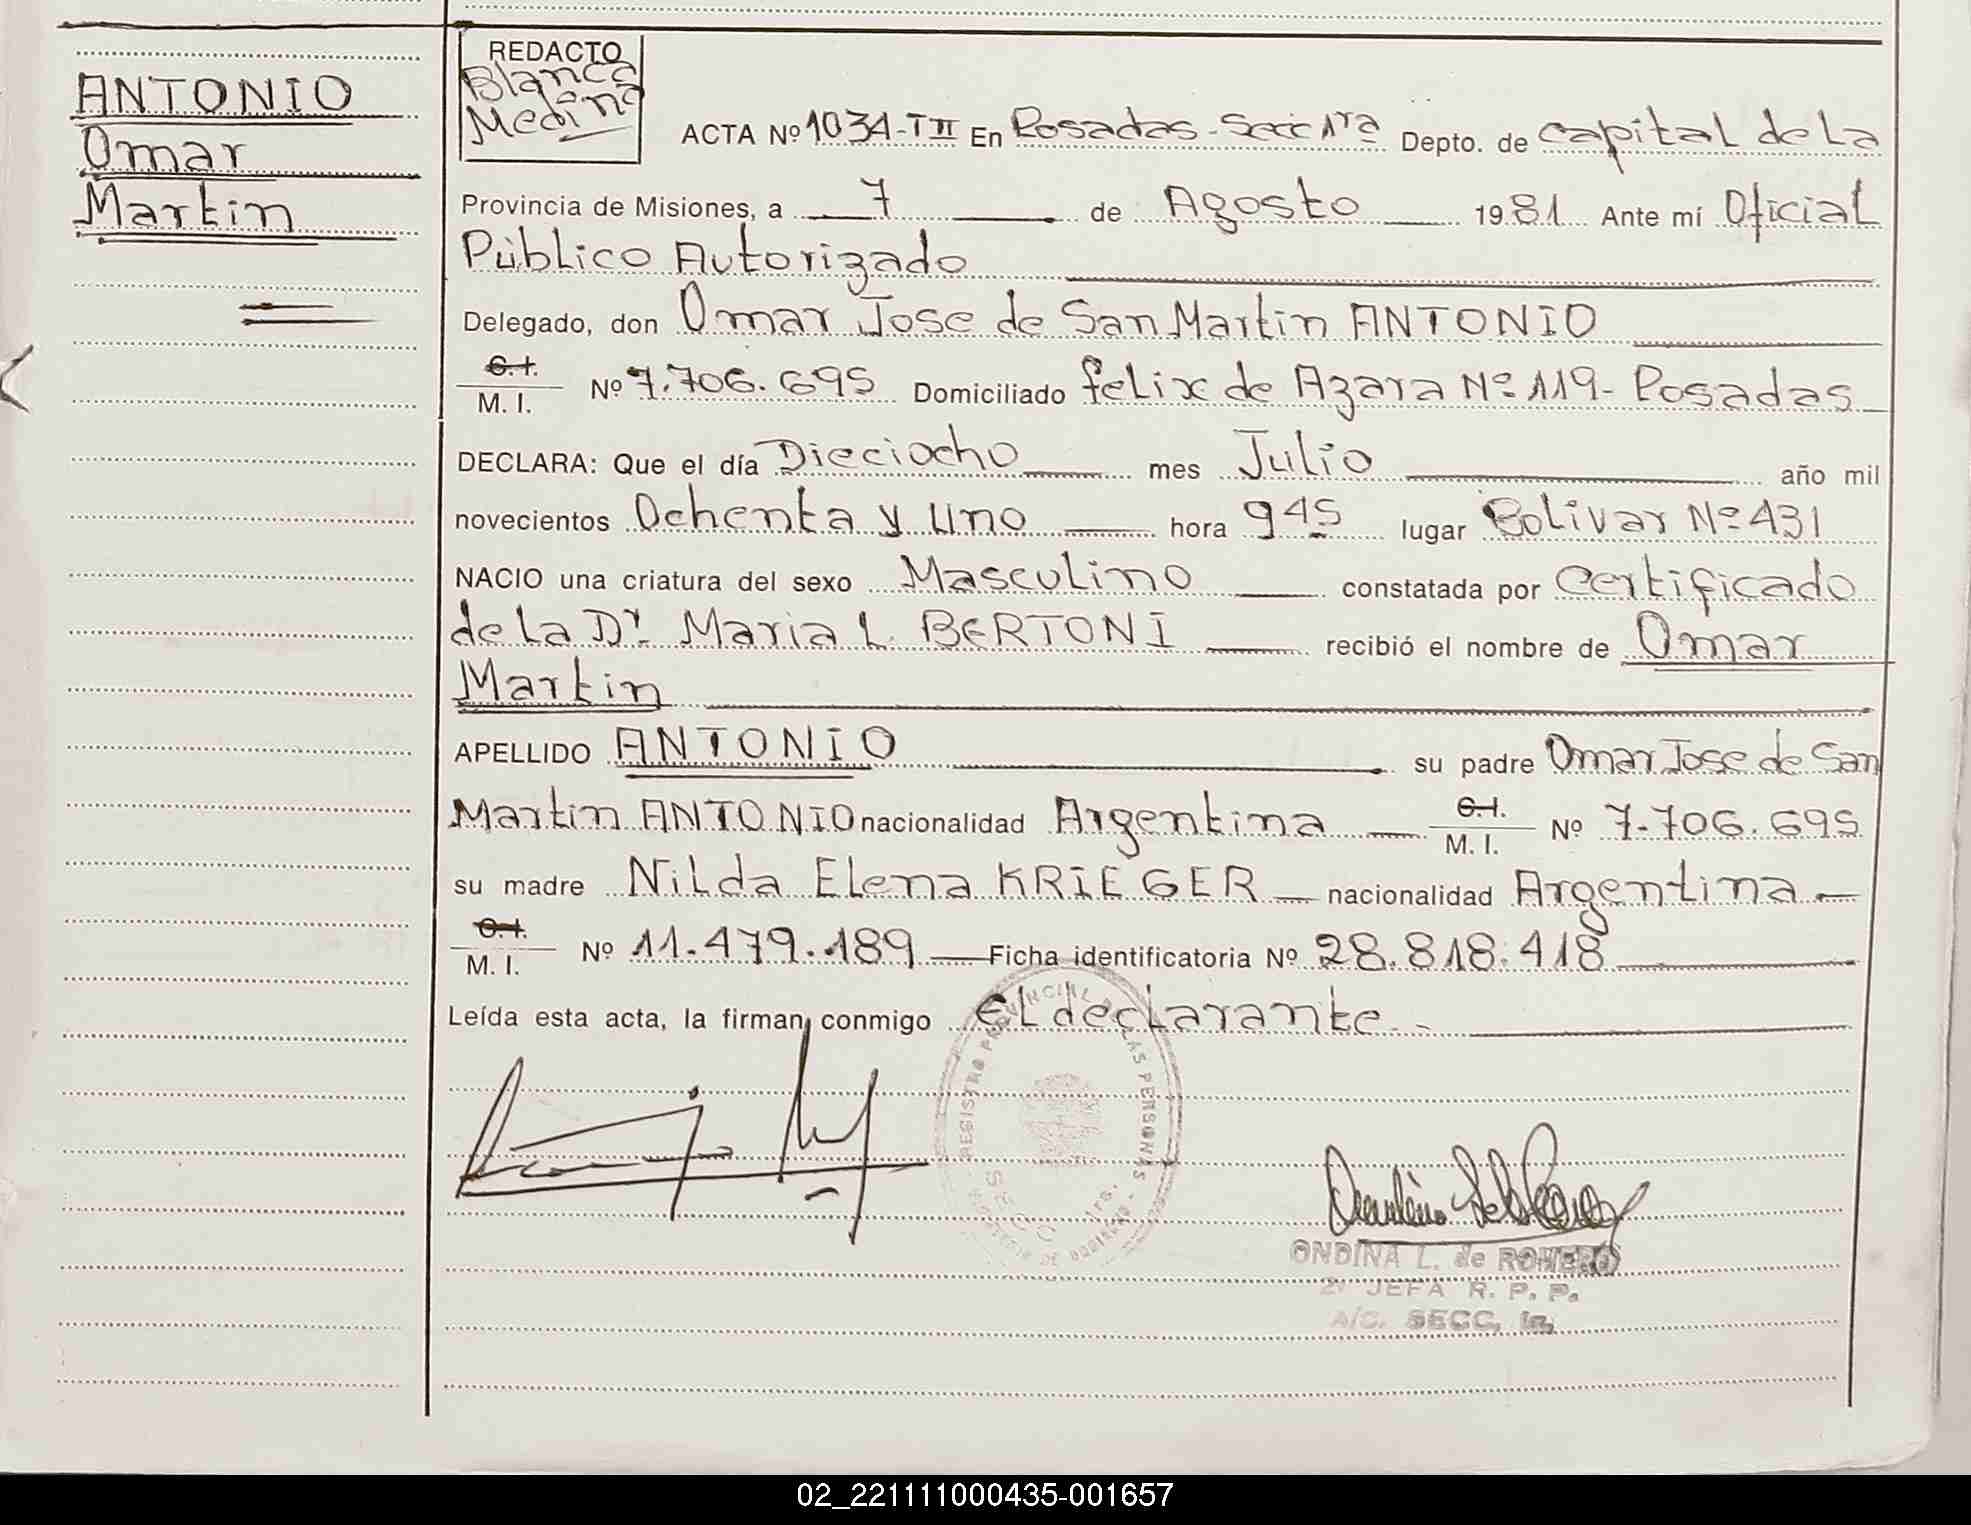 ANTONIO
Omar
Martin
REDACTO
Blanca
Medina
ACTA Nº 1034-TII En Posadas-Secc 1ra Depto. de capital de La
Provincia de Misiones, a 7 de Agosto 1981 Ante mí Oficial
Público Autorizado
Delegado, don Omar Jose de San Martin ANTONIO
C.I.
M. I. Nº 7.706.695 Domiciliado felix de Azara Nº 119- Posadas
DECLARA: Que el día Dieciocho mes Julio año mil
novecientos Ochenta y uno hora 945 lugar Bolivar Nº 431
NACIO una criatura del sexo Masculino constatada por certificado
de La Dr. Maria L. BERTONI recibió el nombre de Omar
Martin
APELLIDO ANTONIO su padre Omar Jose de San
Martin ANTONIO nacionalidad Argentina C.I. M. I. Nº 7.706.695
su madre Nilda Elena KRIEGER nacionalidad Argentina
C.I.
M. I. Nº 11.479.189 Ficha identificatoria Nº 28.818.418
Leída esta acta, la firman conmigo El declarante.-
REGISTRO PROVINCIAL DE LAS PERSONAS
SECC 1ra.
ONDINA L. de ROMERO
2º JEFA R. P. P.
A/C. SECC. 1a.
02_221111000435-001657